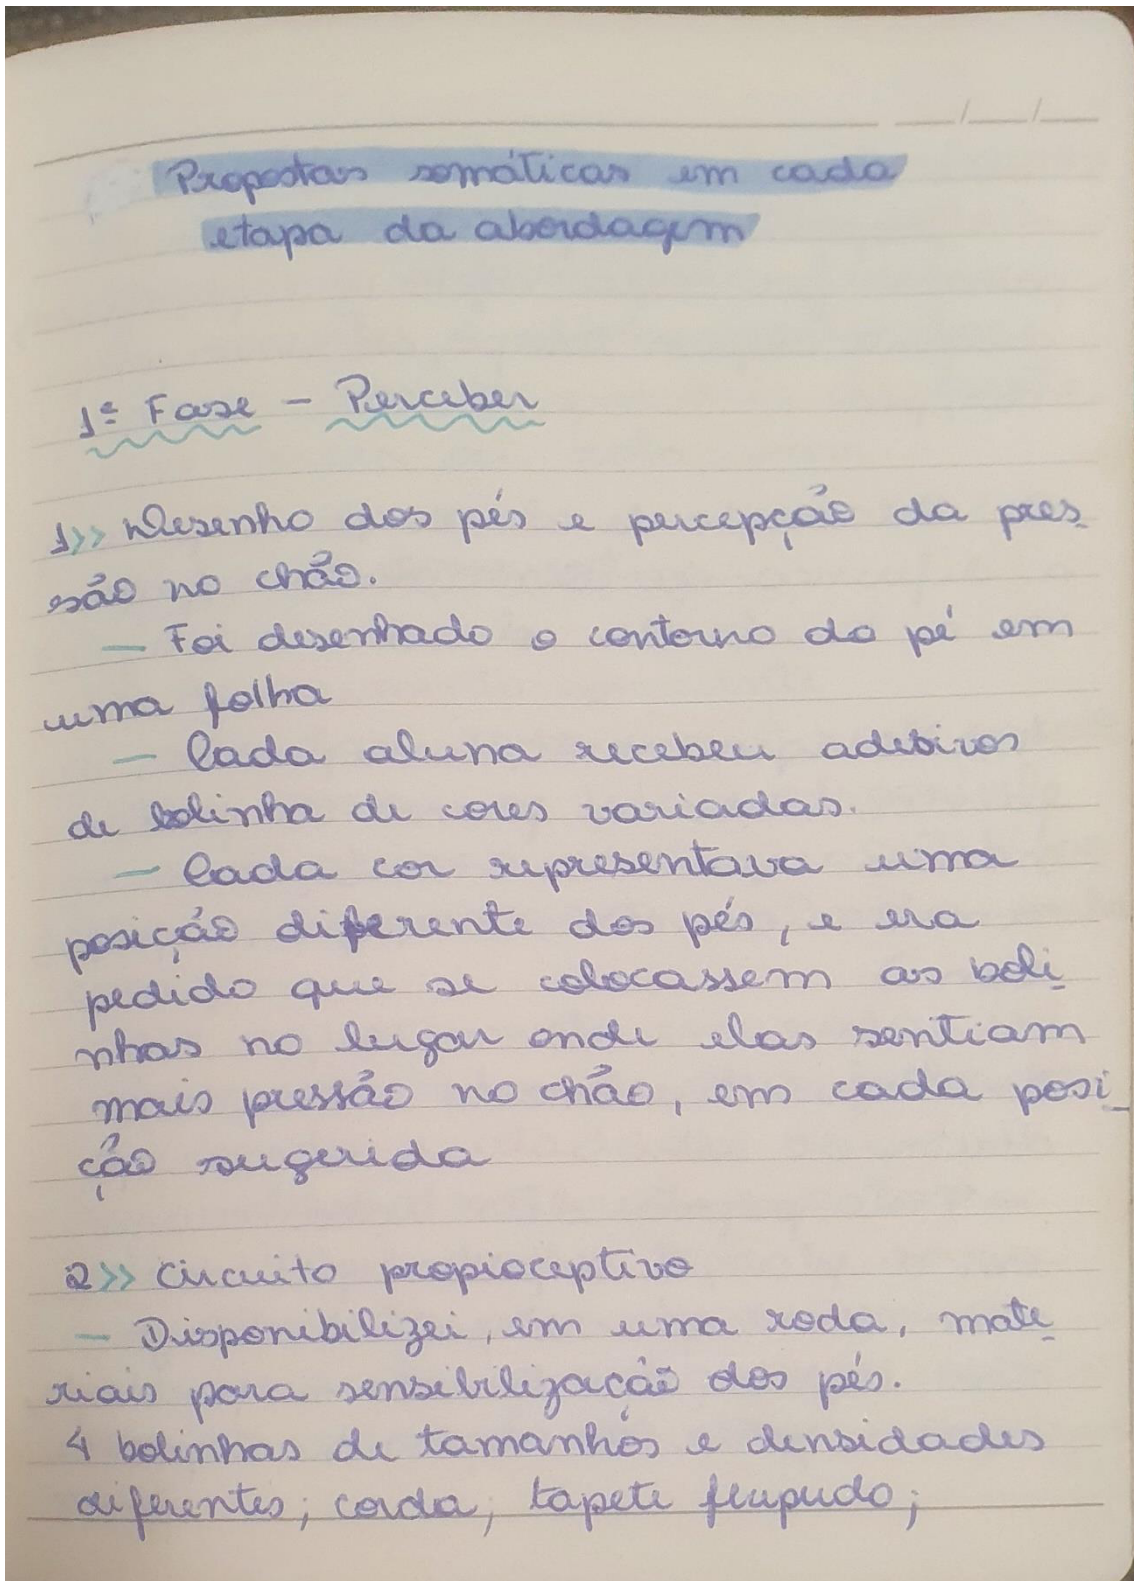 Propostas somáticas em cada
etapa da abordagem
1ª Fase - Perceber
1>> Desenho dos pés e percepção da pres-
são no chão.
- Foi desenhado o contorno do pé em
uma folha
- Cada aluna recebeu adesivos
de bolinha de cores variadas.
- Cada cor representava uma
posição diferente dos pés, e era
pedido que se colocassem as boli-
nhas no lugar onde elas sentiam
mais pressão no chão, em cada posi-
ção sugerida
2>> Circuito propioceptivo
- Disponibilizei, em uma roda, mate-
riais para sensibilização dos pés.
4 bolinhas de tamanhos e densidades
diferentes; corda; tapete felpudo;